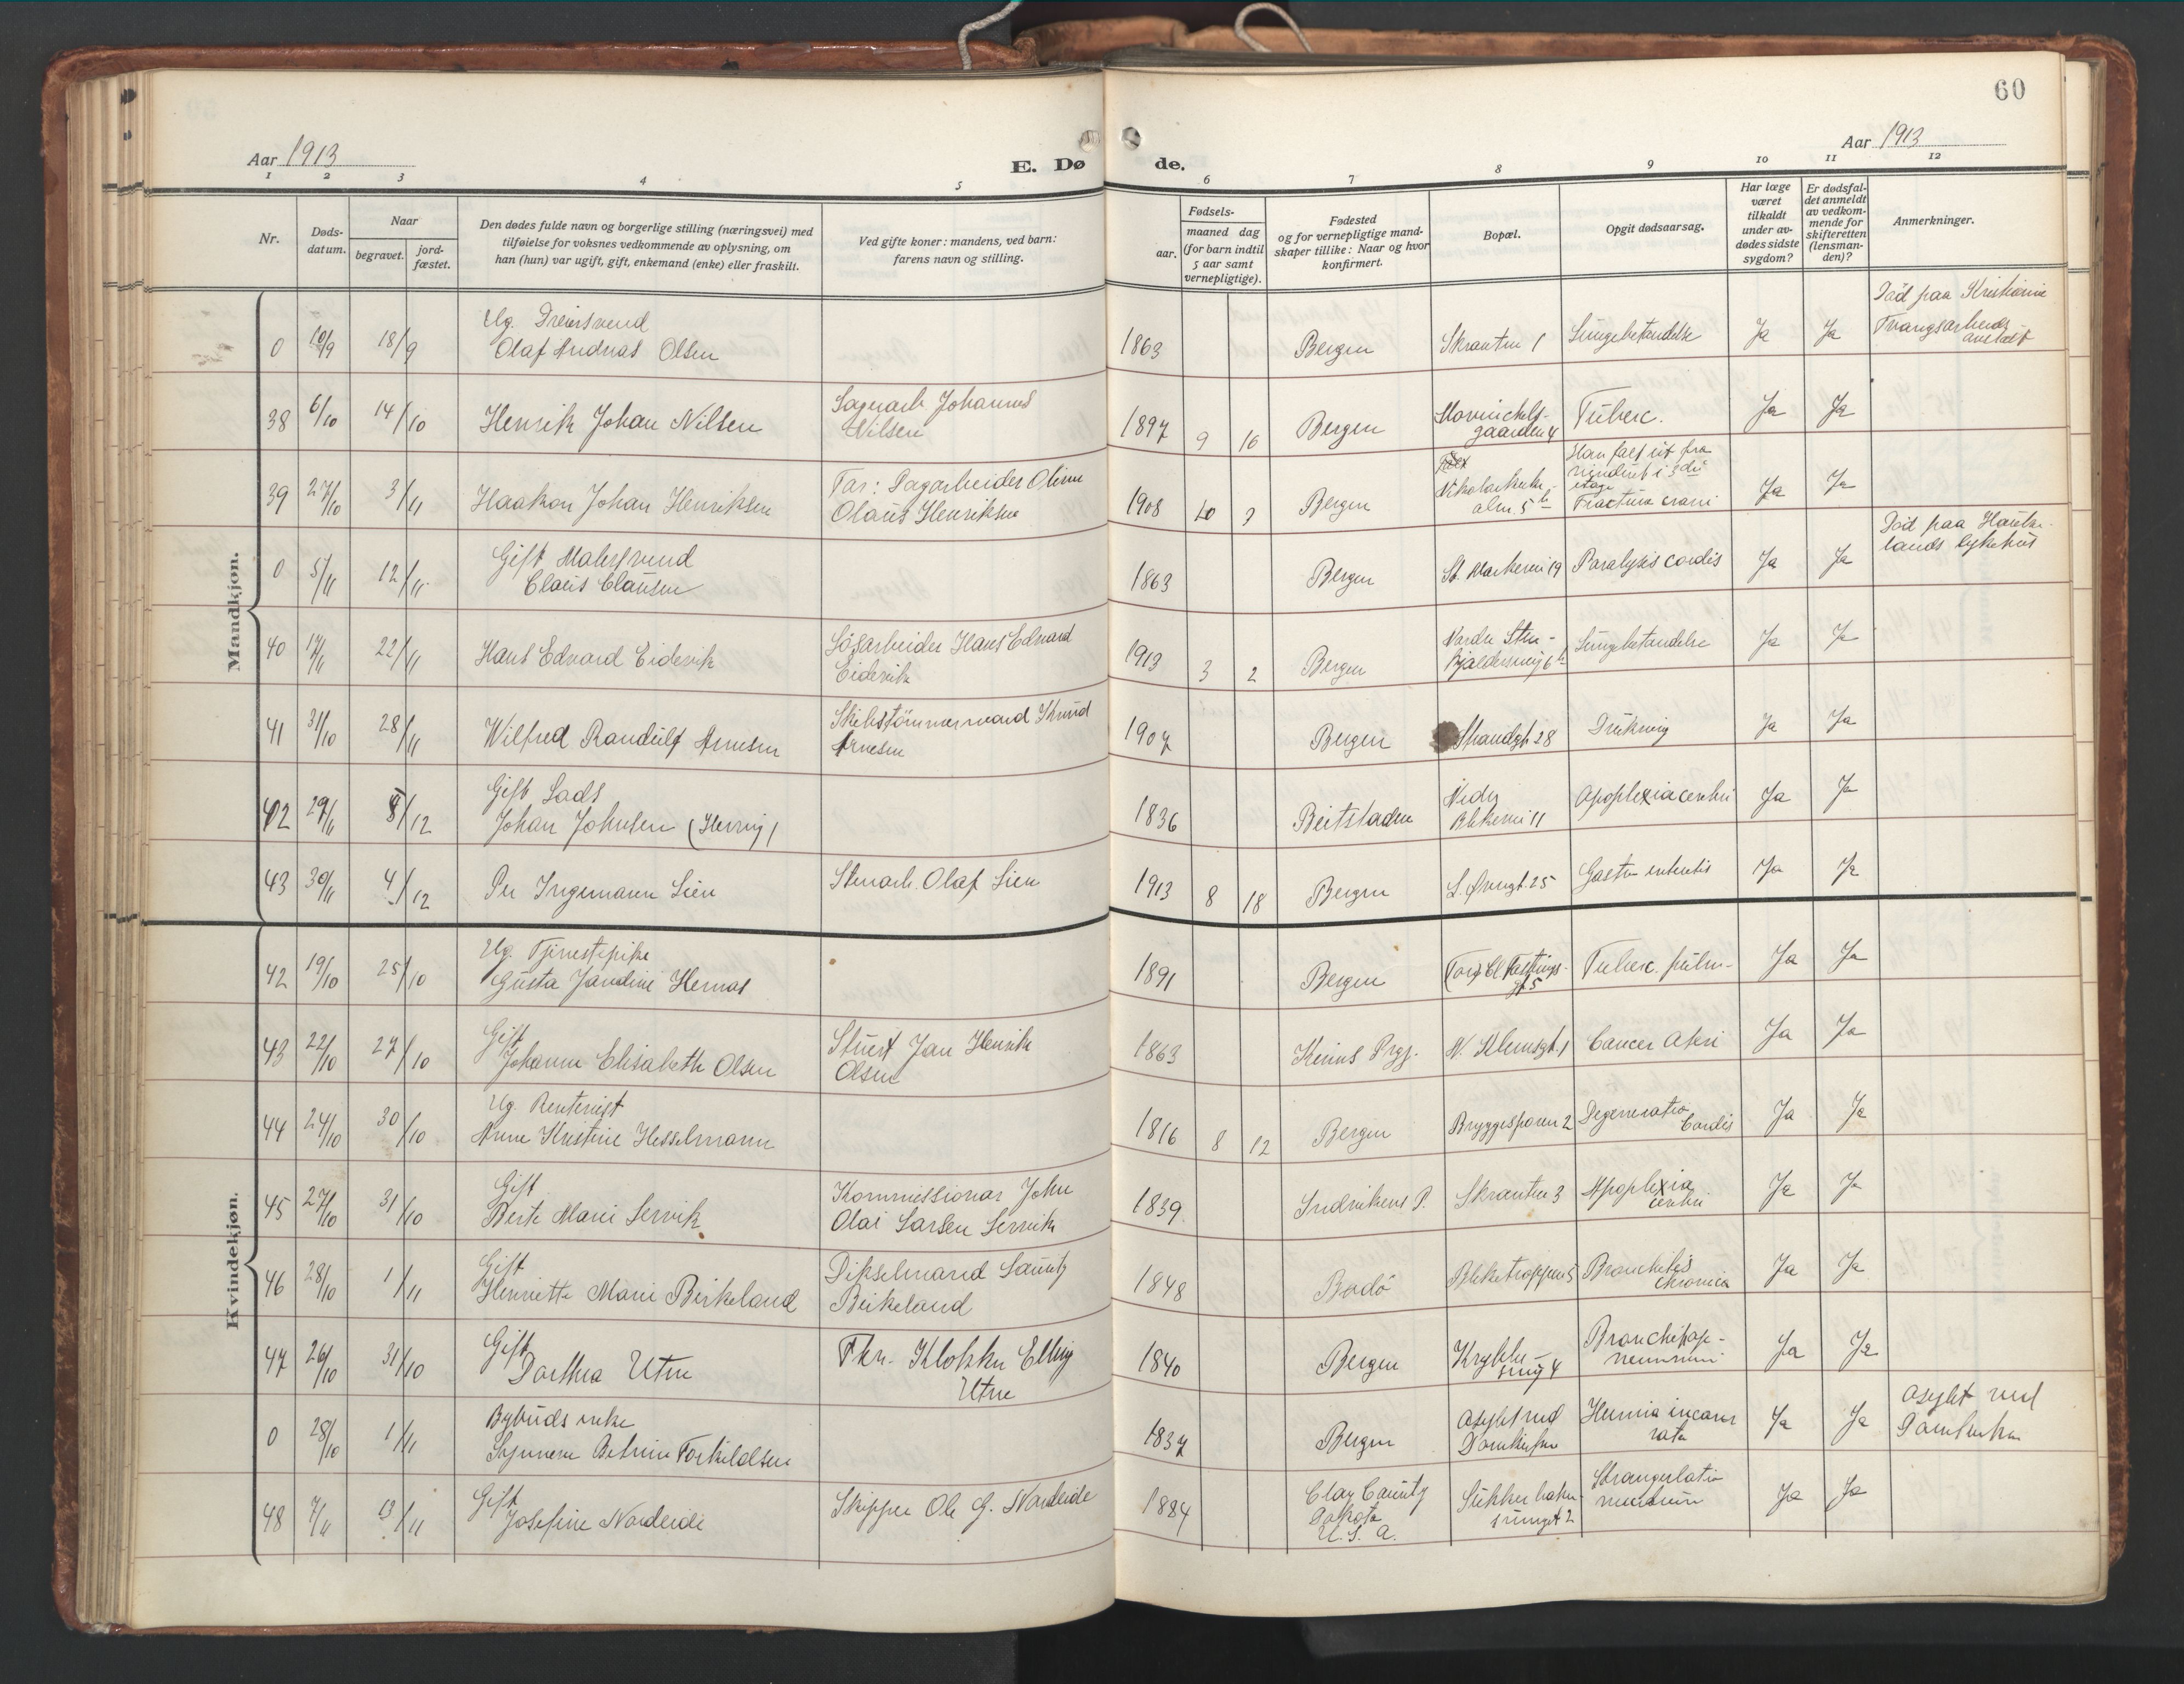 60
Aar 1913
E. Dø
de.
Aar 1913
1 2 3 4 5 6 7 8 9 10 11 12
Nr.
Døds-
datum.
Naar
begravet.
jord-
fæstet.
Den dødes fulde navn og borgerlige stilling (næringsvei) med
tilføielse for voksnes vedkommende av oplysning, om
han (hun) var ugift, gift, enkemand (enke) eller fraskilt.
Ved gifte koner: mandens, ved barn:
farens navn og stilling.
Fødsels-
aar.
maaned dag
(for barn indtil
5 aar samt
vernepligtige).
Fødested
og for vernepligtige mand-
skaper tillike: Naar og hvor
konfirmert.
Bopæl.
Opgit dødsaarsag.
Har læge
været
tilkaldt
under av-
dødes sidste
sygdom?
Er dødsfal-
det anmeldt
av vedkom-
mende for
skifteretten
(lensman-
den)?
Anmerkninger.
Mandkjøn.
0 10/9 18/9 Ug. Dreiersvend
Olaf Andreas Olsen
1863 Bergen Skranten 1 Lungebetændelse Ja Ja
Død paa Kristiania
Tvangsarbeids
anstalt
38 6/10 14/10 Henrik Johan Nilsen
Sagarb. Johannes
Nilsen
1897 9 16 Bergen
gaarden 4 Tuberc. Ja Ja
39 27/10 3/11 Haakon Johan Henriksen
Far: Sagarbeider Oliver
Olaus Henriksen
1908 10 7 Bergen
Nikolaikirke-
alm. 5 b
Han falt ut fra
vinduet i 3die
etage
Fractura cranii Ja Ja
0 5/11 12/11 Gift Malersvend
Claus Clausen
1863 Bergen St. Markevei 19 Paralysis cordis Ja Ja
Død paa Hauke-
lands sykehus
40 17/11 22/11 Hans Edvard Eidevik
Søsarbeider Hans Edvard
Eidevik
1913 3 2 Bergen Nordre Sten-
kjeldersvei 6 b Lungebetændelse Ja Ja
41 31/10 28/11 Wilfred Randulf Arnesen
Skibstømmermand Knud
Arnesen
1907 Bergen Strandgt. 28 Drukning Ja Ja
42 29/11 8/12 Gift Lods
Johan Johnsen (Herrig)
1836 Beitstaden Nedre
Blekevei 11 Apoplexia cerebri Ja Ja
43 30/11 4/12 Per Ingemann Lien
Stenarb. Olaf Lien
1913 8 18 Bergen L. Øvregt. 25 Gastro enteritis Ja Ja
Kvindekjøn.
42 19/10 25/10 Ug. Tjenestepike
Gusta Jandine Hernas
1891 Bergen Cl. Fastings-
gt 5 Tuberc. pulm. Ja Ja
43 22/10 27/10 Gift
Johanne Elisabeth Olsen
Stuert Jan Henrik
Olsen
1863 Kinns Prgj. Cancer uteri Ja Ja
44 24/10 30/10 Ug. Rentenist
Anne Kristine Hesselmann
1816 8 12 Bergen Bryggesporen 2 Degeneratio
Cordis Ja Ja
45 27/10 31/10 Gift
Berte Marie Lervik
Kommissionær John
Olai Larsen Lervik
1839 Indvikens P. Skranten 3 Apoplexia
cerebri Ja Ja
46 28/10 1/11 Gift
Henriette Marie Birkeland
Dikselmand Lauritz
Birkeland
1848 Bodø Bleketrappen 5 Bronchitis
chronica Ja Ja
47 26/10 31/10 Gift
Dorthea Utne
Fhv. Klokker Elling
Utne
1840 Bergen Krybbe-
smug 4 Bronchipop-
neumoni Ja Ja
0 28/10 1/11 Bybuds enke
Synneve Betsine Torkildsen
1837 Bergen Asylet ved
Domkirken Hernia incarce
rata Ja Ja
Asylet ved
Domkirken
48 7/11 13/11 Gift
Josefine Nordeide
Skipper Ole G. Nordeide
1884 Clay County
Dakota
U. S. A.
smuget 2 Ja Ja